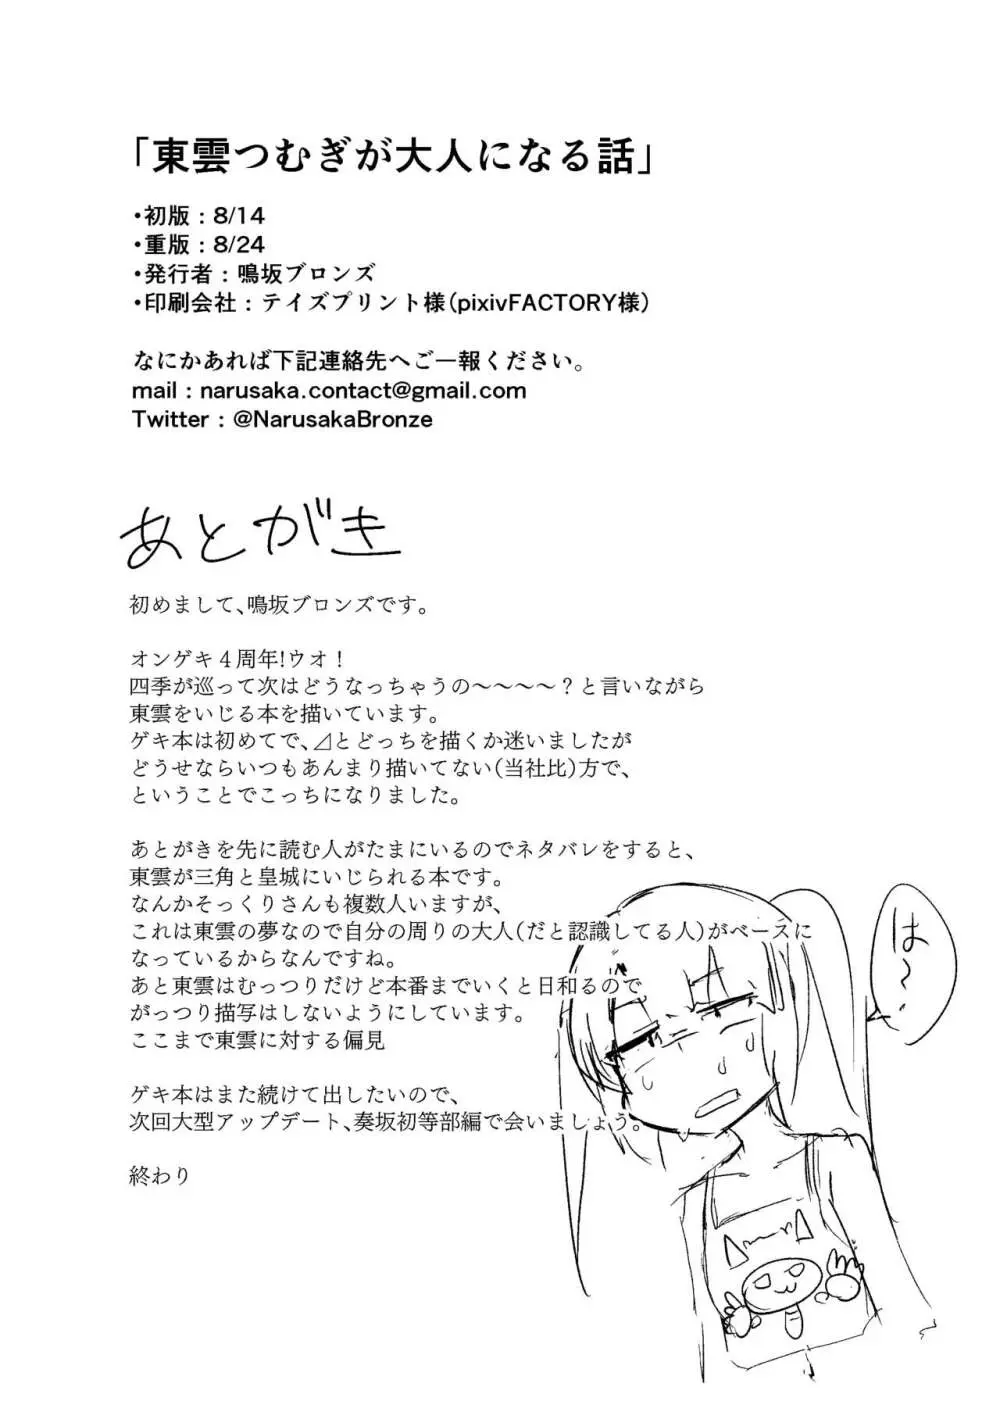 「東雲つむぎが大人になる話」
・初版：8/14
・重版：8/24
・発行者：鳴坂ブロンズ
・印刷会社：テイズプリント様（pixivFACTORY様）
なにかあれば下記連絡先へご一報ください。
mail：narusaka.contact@gmail.com
Twitter：@NarusakaBronze
あとがき
初めまして、鳴坂ブロンズです。
オンゲキ４周年！ウオ！
四季が巡って次はどうなっちゃうの～～～～？と言いながら
東雲をいじる本を描いています。
ゲキ本は初めてで、⊿とどっちを描くか迷いましたが
どうせならいつもあんまり描いてない（当社比）方で、
ということでこっちになりました。
あとがきを先に読む人がたまにいるのでネタバレをすると、
東雲が三角と皇城にいじられる本です。
なんかそっくりさんも複数人いますが、
これは東雲の夢なので自分の周りの大人（だと認識してる人）がベースに
なっているからなんですね。
あと東雲はむっつりだけど本番までいくと日和るので
がっつり描写はしないようにしています。
ここまで東雲に対する偏見
ゲキ本はまた続けて出したいので、
次回大型アップデート、奏坂初等部編で会いましょう。
終わり
は～、